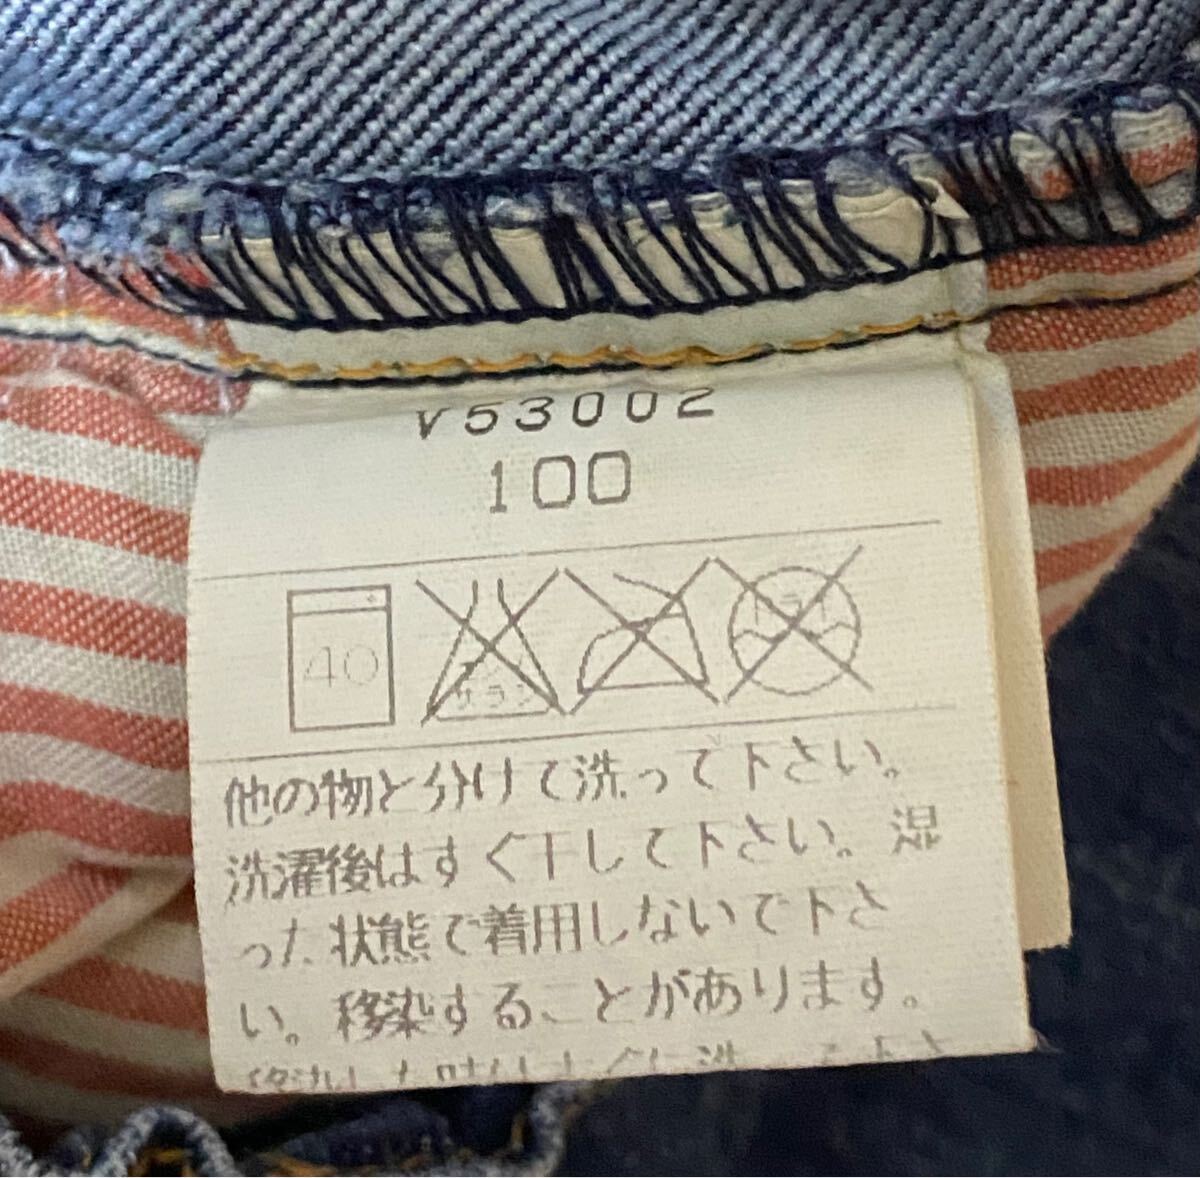 V53002
100
40
エンソ
サラシ
ドライ
他の物と分けて洗って下さい。
洗濯後はすぐ干して下さい。湿
った状態で着用しないで下さ
い。移染することがあります。
移染した時はすぐに洗って下さ